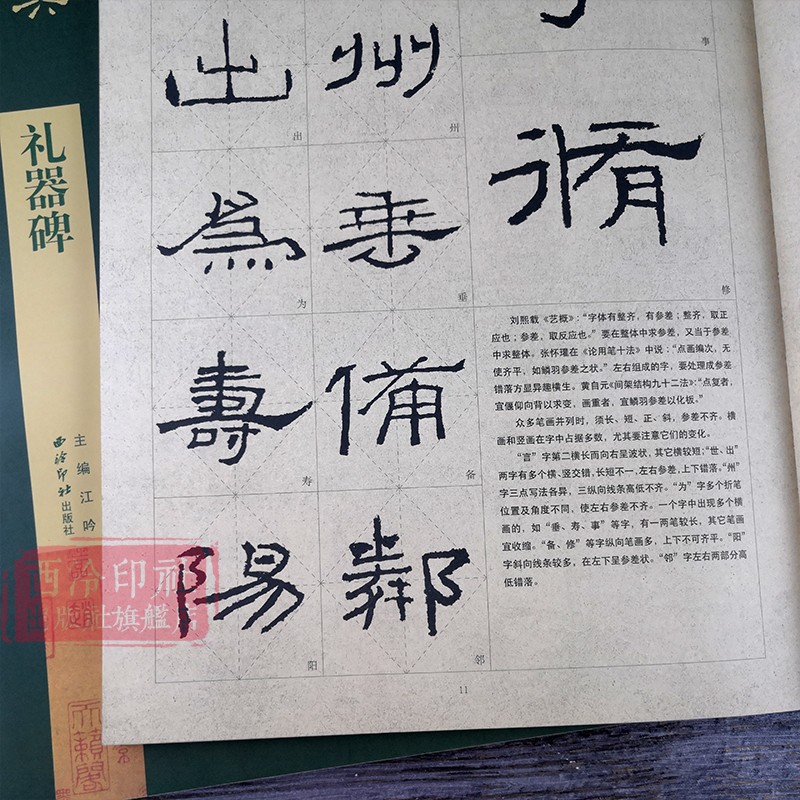 礼器碑
主编江吟
西泠印社出版社
出
出
州
州
事
為
为
垂
垂
脩
修
壽
寿
備
备
陽
阳
鄰
邻
刘熙载《艺概》：“字体有整齐，有参差；整齐，取正
应也；参差，取反应也。”要在整体中求参差，又当于参差
中求整体，张怀瓘在《论用笔十法》中说：“点画编次，无
使齐平，如鳞羽参差之状。”左右组成的字，要处理成参差
错落方显异趣横生。黄自元《间架结构九十二法》：“点复者，
宜偃仰向背以求变，画重者，宜鳞羽参差以化板。”
众多笔画并列时，须长、短、正、斜，参差不齐。横
画和竖画在字中占据多数，尤其要注意它们的变化。
“言”字第二横长而向右呈波状，其它横较短；“世、出”
两字有多个横、竖交错，长短不一，左右参差，上下错落。“州”
字三点写法各异，三纵向线条高低不齐。“为”字多个折笔
位置及角度不同，使左右参差不齐。一个字中出现多个横
画的，如“垂、寿、事”等字，有一两笔较长，其它笔画
宜收缩。“备、修”等字纵向笔画多，上下不可齐平。“阳”
字斜向线条较多，在左下呈参差状。“邻”字左右两部分高
低错落。
11
西泠印社
出版社旗舰店
天籁阁